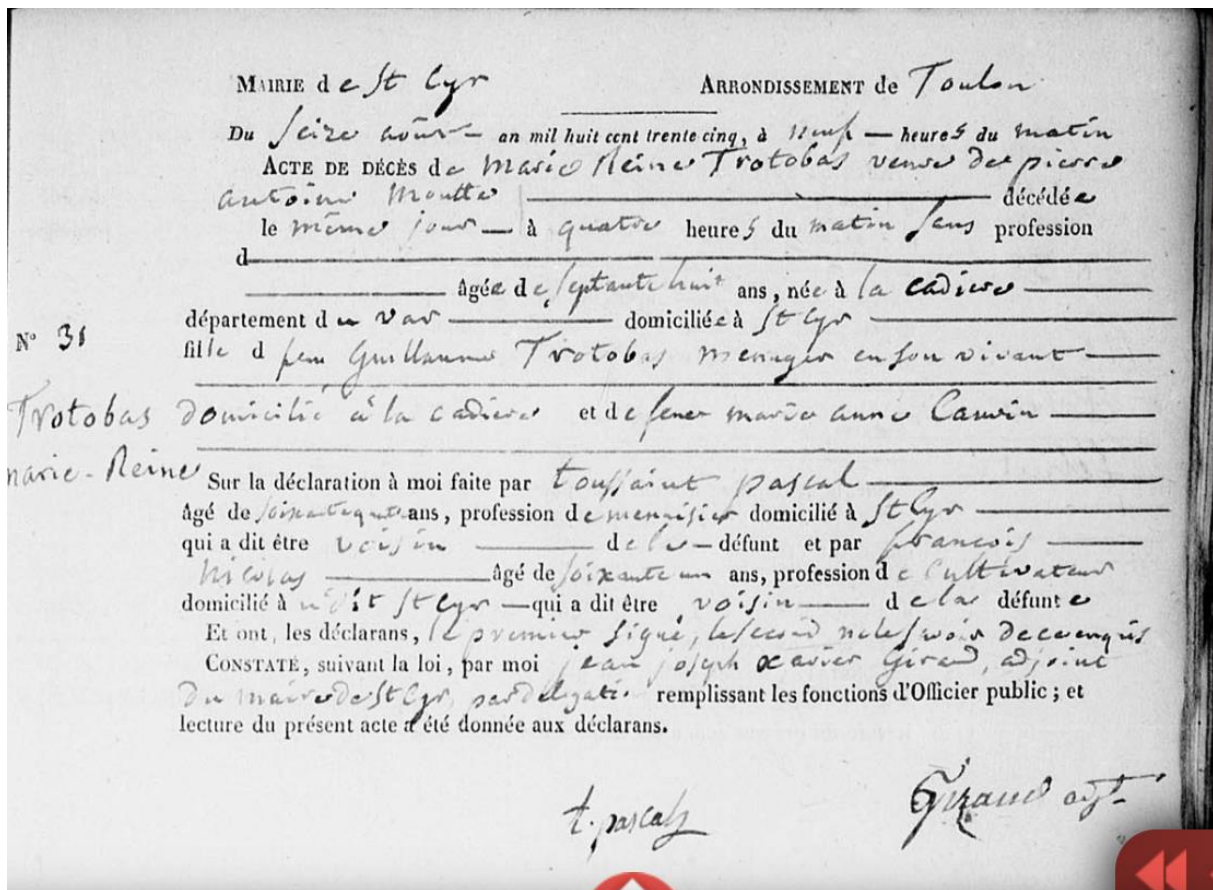 MAIRIE de St Cyr ARRONDISSEMENT de Toulon
Du Seize août an mil huit cent trente cinq, à neuf heures du matin
ACTE DE DÉCÈS de Marie Reine Trotobas veuve de pierre
antoine Moutte décédée
le même jour à quatre heures du matin sans profession
d
âgée de septante huit ans, née à la cadiere
département du var domiciliée à St Cyr
fille d feu Guillaume Trotobas menager en son vivant
N° 31
Trotobas domicilié à la cadiere et de feue marie anne
marie-Reine
Sur la déclaration à moi faite par toussaint pascal
âgé de ans, profession de menuisier domicilié à St Cyr
qui a dit être voisin de la défunt et par françois
Nicolas âgé de soixante un ans, profession de cultivateur
domicilié à St Cyr qui a dit être voisin de la défunte
Et ont, les déclarans, le premier signé, le second ne le savoir de ce enquis
CONSTATÉ, suivant la loi, par moi jean joseph xavier Giraud, adjoint
du maire de St Cyr, par delegati remplissant les fonctions d'Officier public ; et
lecture du présent acte a été donnée aux déclarans.
t. pascal Giraud adjt